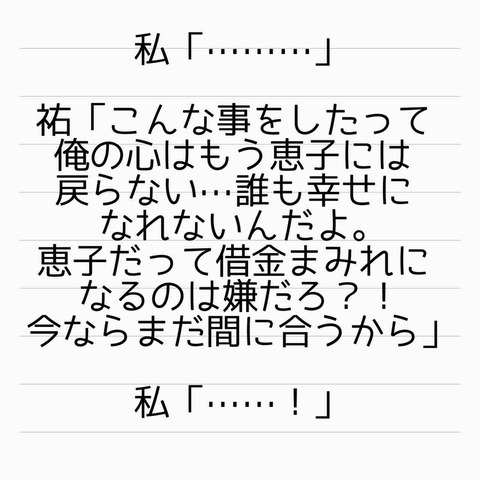 私「………」
祐「こんな事をしたって
俺の心はもう恵子には
戻らない…誰も幸せに
なれないんだよ。
恵子だって借金まみれに
なるのは嫌だろ？！
今ならまだ間に合うから」
私「……！」